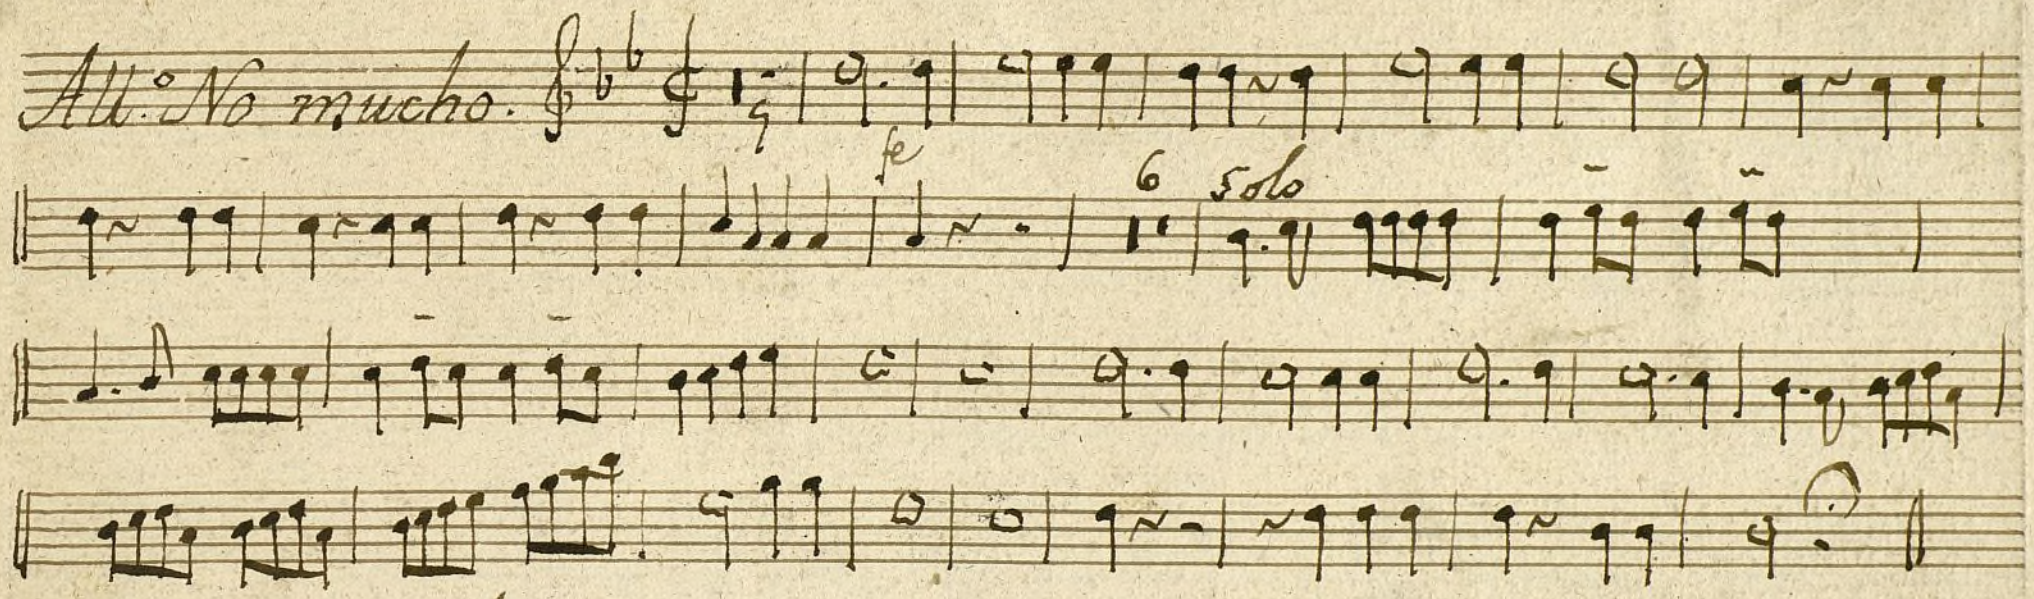 All.º No mucho.
5
fe
6 Solo